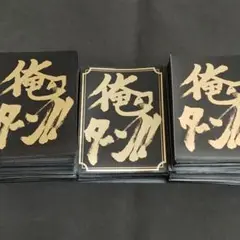 俺の
ターン!!
俺の
ターン!!
俺の
ターン!!